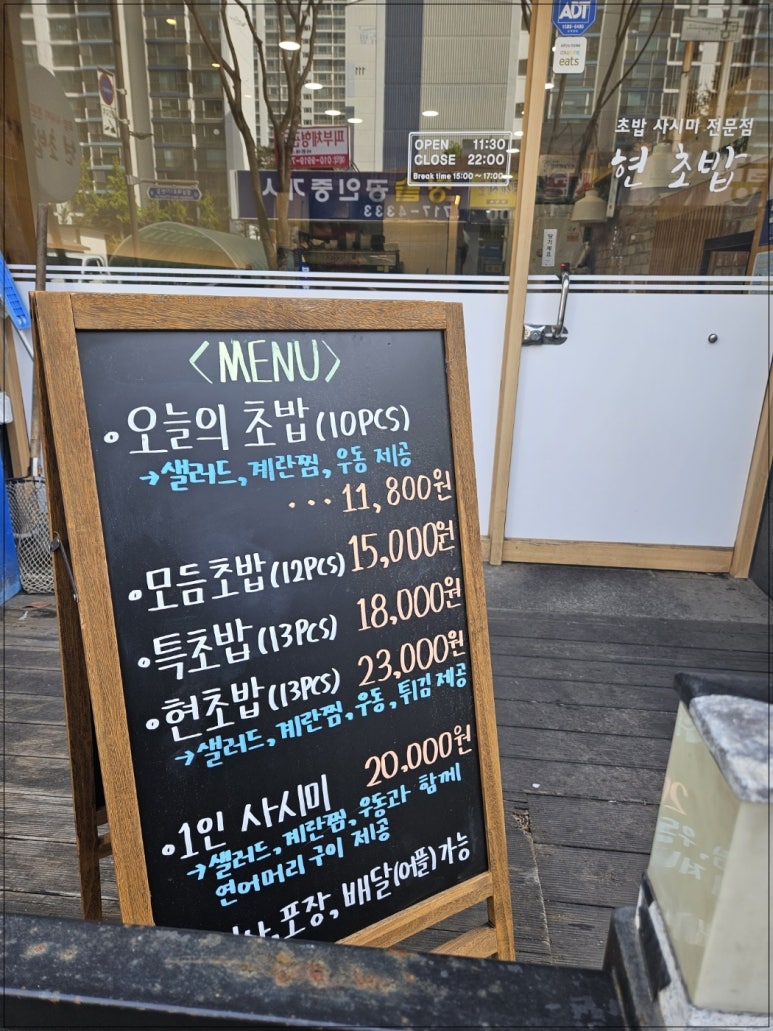 ADT
eats
초밥 사시미 전문점
현 초밥
OPEN 11:30
CLOSE 22:00
Break time 15:00 ~ 17:00
공인중개사
717-4333
111
<MENU>
•오늘의 초밥(10PCS)
→샐러드,계란찜,우동 제공
... 11,800원
•모듬초밥(12PCS) 15,000원
•특초밥(13PCS) 18,000원
•현초밥(13PCS) 23,000원
→샐러드,계란찜,우동,튀김제공
•1인 사시미 20,000원
→샐러드,계란찜,우동과 함께
연어머리 구이 제공
포장,배달(어플)가능